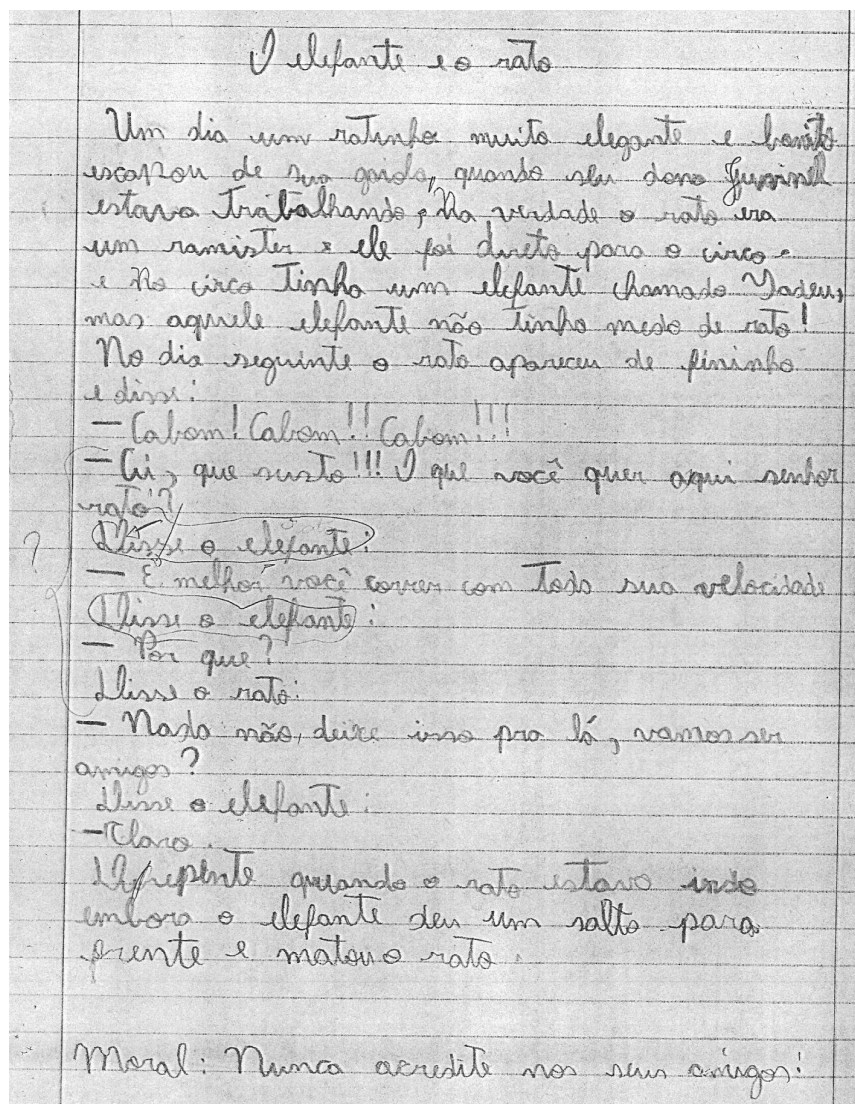 O elefante e o rato
Um dia um ratinho muito elegante e bonito
escapou de sua gaiola, quando seu dono
estava trabalhando, Na verdade o rato era
um ramister e ele foi direto para o circo
e No circo Tinha um elefante chamado Tadeu,
mas aquele elefante não tinha medo de rato!
No dia seguinte o rato apareceu de fininho
e disse:
— Cabom! Cabom!! Cabom!!!
— Ai, que susto!!! O que você quer aqui senhor
rato?
Disse o elefante:
— É melhor você correr com Toda sua velocidade
Disse o elefante:
— Por que?
Disse o rato:
— Nada não, deixe isso pra lá, vamos ser
amigos?
Disse o elefante:
— Claro.
Derrepente quando o rato estava indo
embora o elefante deu um salto para
frente e matou o rato.
Moral: Nunca acredite nos seus amigos!
?